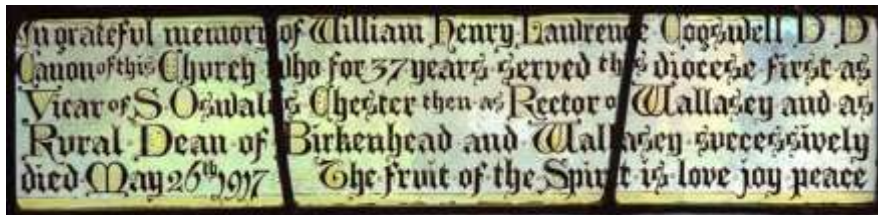 In grateful memory of William Henry Lawrence Cogswell D D
Canon of this Church who for 37 years served this diocese first as
Vicar of S Oswalds Chester then as Rector of Wallasey and as
Rural Dean of Birkenhead and Wallasey successively
died May 26th 1917 The fruit of the Spirit is love joy peace